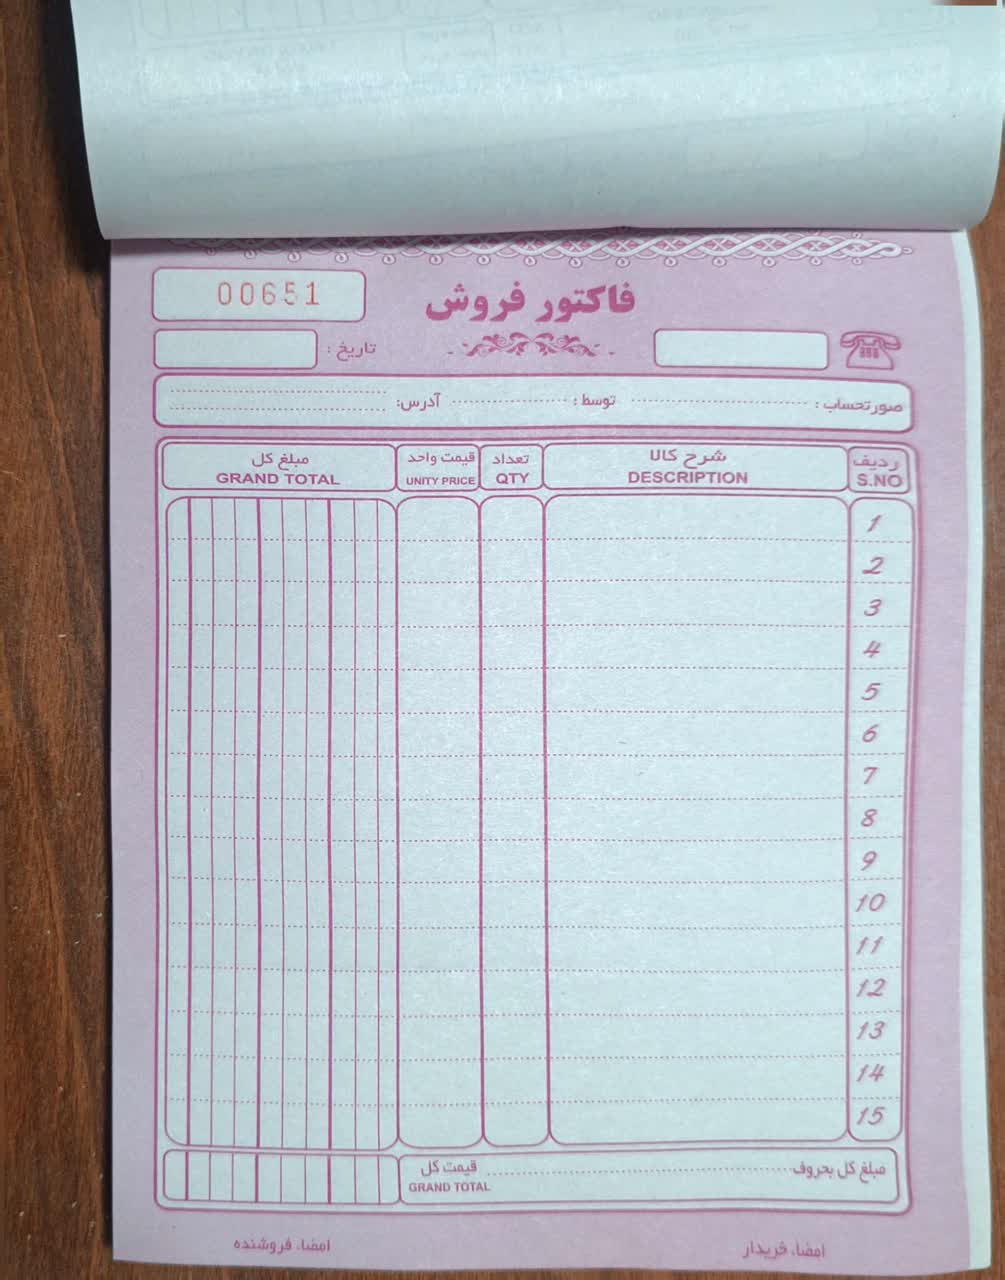 00651
فاکتور فروش
تاریخ :
صورتحساب : توسط : آدرس:
ردیف شرح کالا تعداد قیمت واحد مبلغ کل
S.NO DESCRIPTION QTY UNITY PRICE GRAND TOTAL
1
2
3
4
5
6
7
8
9
10
11
12
13
14
15
مبلغ کل بحروف قیمت کل
GRAND TOTAL
امضاء خریدار امضاء فروشنده